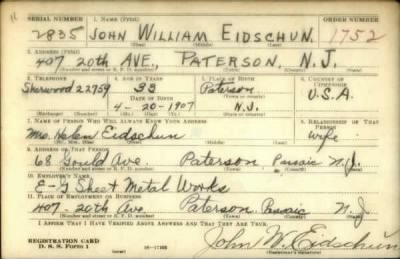 SERIAL NUMBER 1. NAME (Print) ORDER NUMBER
2835 JOHN WILLIAM EIDSCHUN. 1752
(First) (Middle) (Last)
2. ADDRESS (Print)
407 20th AVE., PATERSON, N.J.
(Number and street or R. F. D. number) (Town) (County) (State)
3. TELEPHONE 4. AGE IN YEARS 5. PLACE OF BIRTH 6. COUNTRY OF CITIZENSHIP
Sherwood 22759 33 Paterson U.S.A.
DATE OF BIRTH (Town or county)
4-20-1907 N.J.
(Exchange) (Number) (Mo.) (Day) (Yr.) (State or country)
7. NAME OF PERSON WHO WILL ALWAYS KNOW YOUR ADDRESS 8. RELATIONSHIP OF THAT PERSON
Mrs. Helen Eidschun wife
(Mr., Mrs., Miss) (First) (Middle) (Last)
9. ADDRESS OF THAT PERSON
68 Gould Ave. Paterson Passaic N.J.
(Number and street or R. F. D. number) (Town) (County) (State)
10. EMPLOYER'S NAME
E-G Sheet Metal Works
11. PLACE OF EMPLOYMENT OR BUSINESS
407-20th Ave Paterson Passaic N.J.
(Number and street or R. F. D. number) (Town) (County) (State)
I AFFIRM THAT I HAVE VERIFIED ABOVE ANSWERS AND THAT THEY ARE TRUE.
REGISTRATION CARD
D. S. S. Form 1 John W. Eidschun
(Registrant's signature)